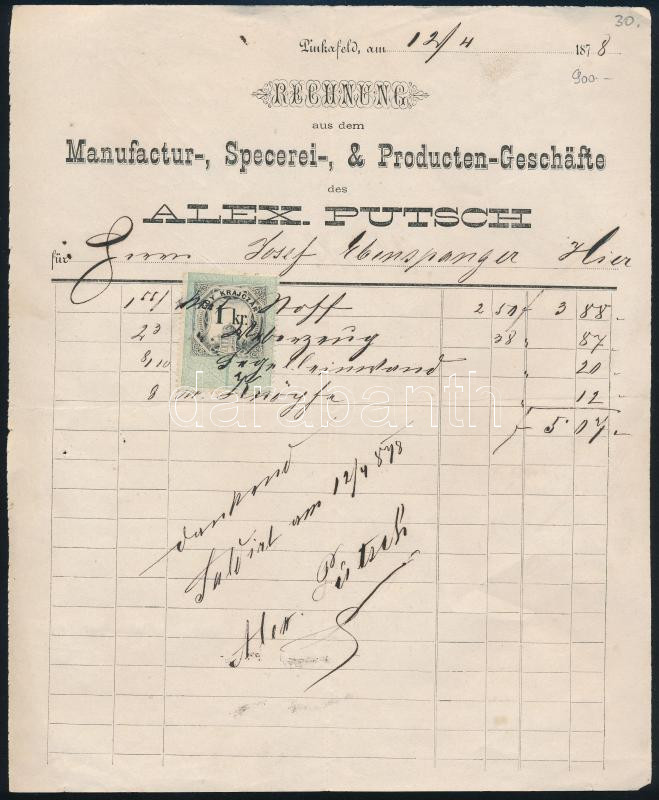 30.
Pinkafeld, am 12/4 1878
900.-
RECHNUNG
aus dem
Manufactur-, Specerei-, & Producten-Geschäfte
des
ALEX. PUTSCH
für Herrn Josef Ebenspanger Hier
1 55/ Stoff 2 50 f 3 88
EGY KRAJCZÁR
1 kr.
23 38 " 87
8/10 Segelleinwand " 20
8 Knöpfe " 12
f 5.07
darabanth
dankend
Saldirt am 12/4 878
Alex. Putsch